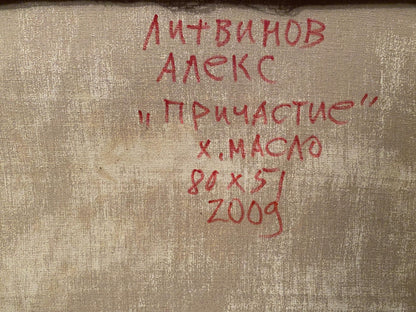 ЛИТВИНОВ
АЛЕКС
„ПРИЧАСТИЕ”
Х. МАСЛО
80 x 51
2009